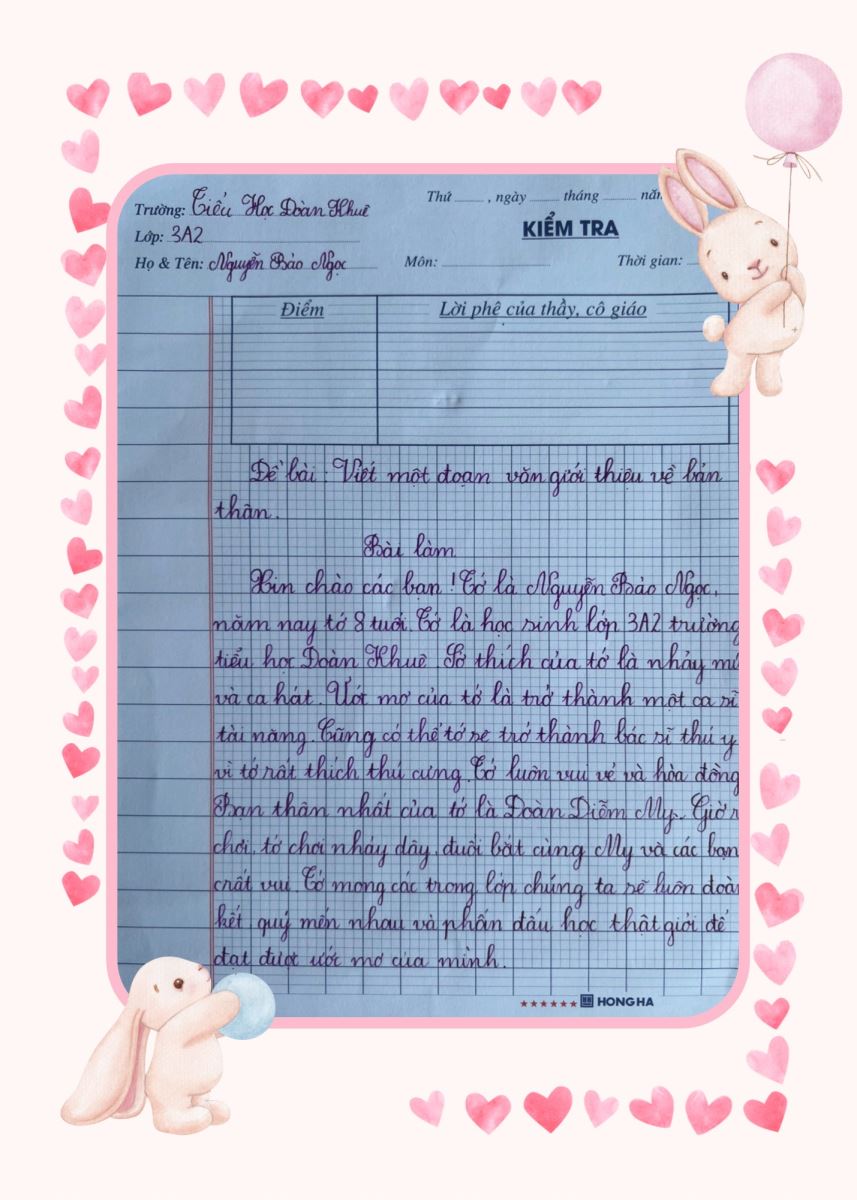 Trường: Tiểu Học Đoàn Khuê
Thứ ........ , ngày ........ tháng ........ năm
KIỂM TRA
Lớp: 3A2
Họ & Tên: Nguyễn Bảo Ngọc
Môn: ........
Thời gian:
Điểm
Lời phê của thầy, cô giáo
Đề bài : Viết một đoạn văn giới thiệu về bản
thân.
Bài làm
Xin chào các bạn ! Tớ là Nguyễn Bảo Ngọc,
năm nay tớ 8 tuổi. Tớ là học sinh lớp 3A2 trường
tiểu học Đoàn Khuê. Sở thích của tớ là nhảy mú
và ca hát. Ước mơ của tớ là trở thành một ca sĩ
tài năng. Cũng có thể tớ sẽ trở thành bác sĩ thú y
vì tớ rất thích thú cưng. Tớ luôn vui vẻ và hòa đồng
Bạn thân nhất của tớ là Đoàn Diễm My. Giờ r
chơi, tớ chơi nhảy dây, đuổi bắt cùng My và các bạn
rất vui. Tớ mong các trong lớp chúng ta sẽ luôn đoà
kết quý mến nhau và phấn đấu học thật giỏi để
đạt được ước mơ của mình.
HONG HA